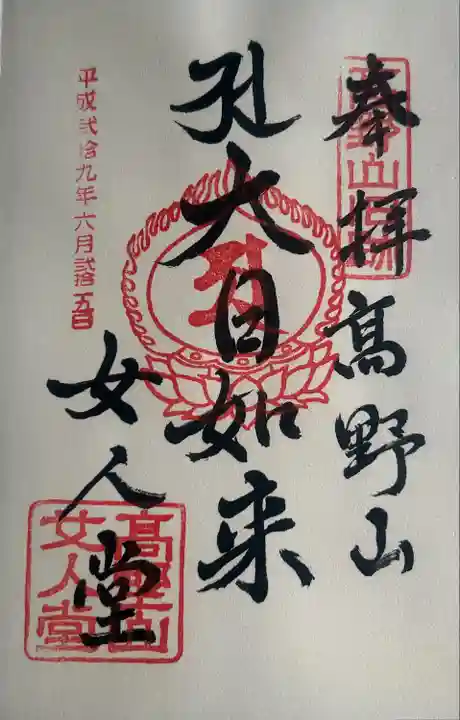 奉拝髙野山
大日如来
女人堂
平成弐拾九年六月弐拾五日
髙野山
女人堂